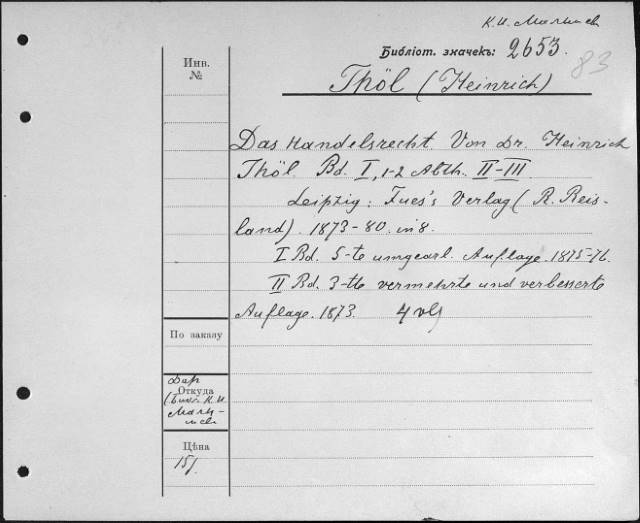 К. И. Малышев
Библіот. значекъ: 2653.
83
Инв. №
Thöl (Heinrich)
Das Handelsrecht. Von Dr. Heinrich
Thöl. Bd. I, 1-2 Abth. II-III.
Leipzig: Fues's Verlag (R. Reis-
land). 1873-80. in 8.
I Bd. 5-te umgearb. Auflage. 1875-76.
II Bd. 3-tte vermehrte und verbesserte
Auflage. 1873. 4
По заказу
Дар
Откуда
(Библ. К. И.
Малы-
шев
Цѣна